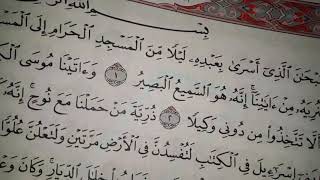 بِسْمِ اللَّهِ الر
سُبْحَٰنَ الَّذِي أَسْرَىٰ بِعَبْدِهِ لَيْلًا مِّنَ الْمَسْجِدِ الْحَرَامِ إِلَى الْمَسْ
لِنُرِيَهُ مِنْ ءَايَٰتِنَا إِنَّهُ هُوَ السَّمِيعُ الْبَصِيرُ ١ وَءَاتَيْنَا مُوسَى الْكِ
أَلَّا تَتَّخِذُوا مِن دُونِي وَكِيلًا ٢ ذُرِّيَّةَ مَنْ حَمَلْنَا مَعَ نُوحٍ إِنَّهُ
إِسْرَٰٓءِيلَ فِي الْكِتَٰبِ لَتُفْسِدُنَّ فِي الْأَرْضِ مَرَّتَيْنِ وَلَتَعْلُنَّ عُلُوًّا
خِلَٰلَ الدِّيَارِ وَكَانَ وَعْد